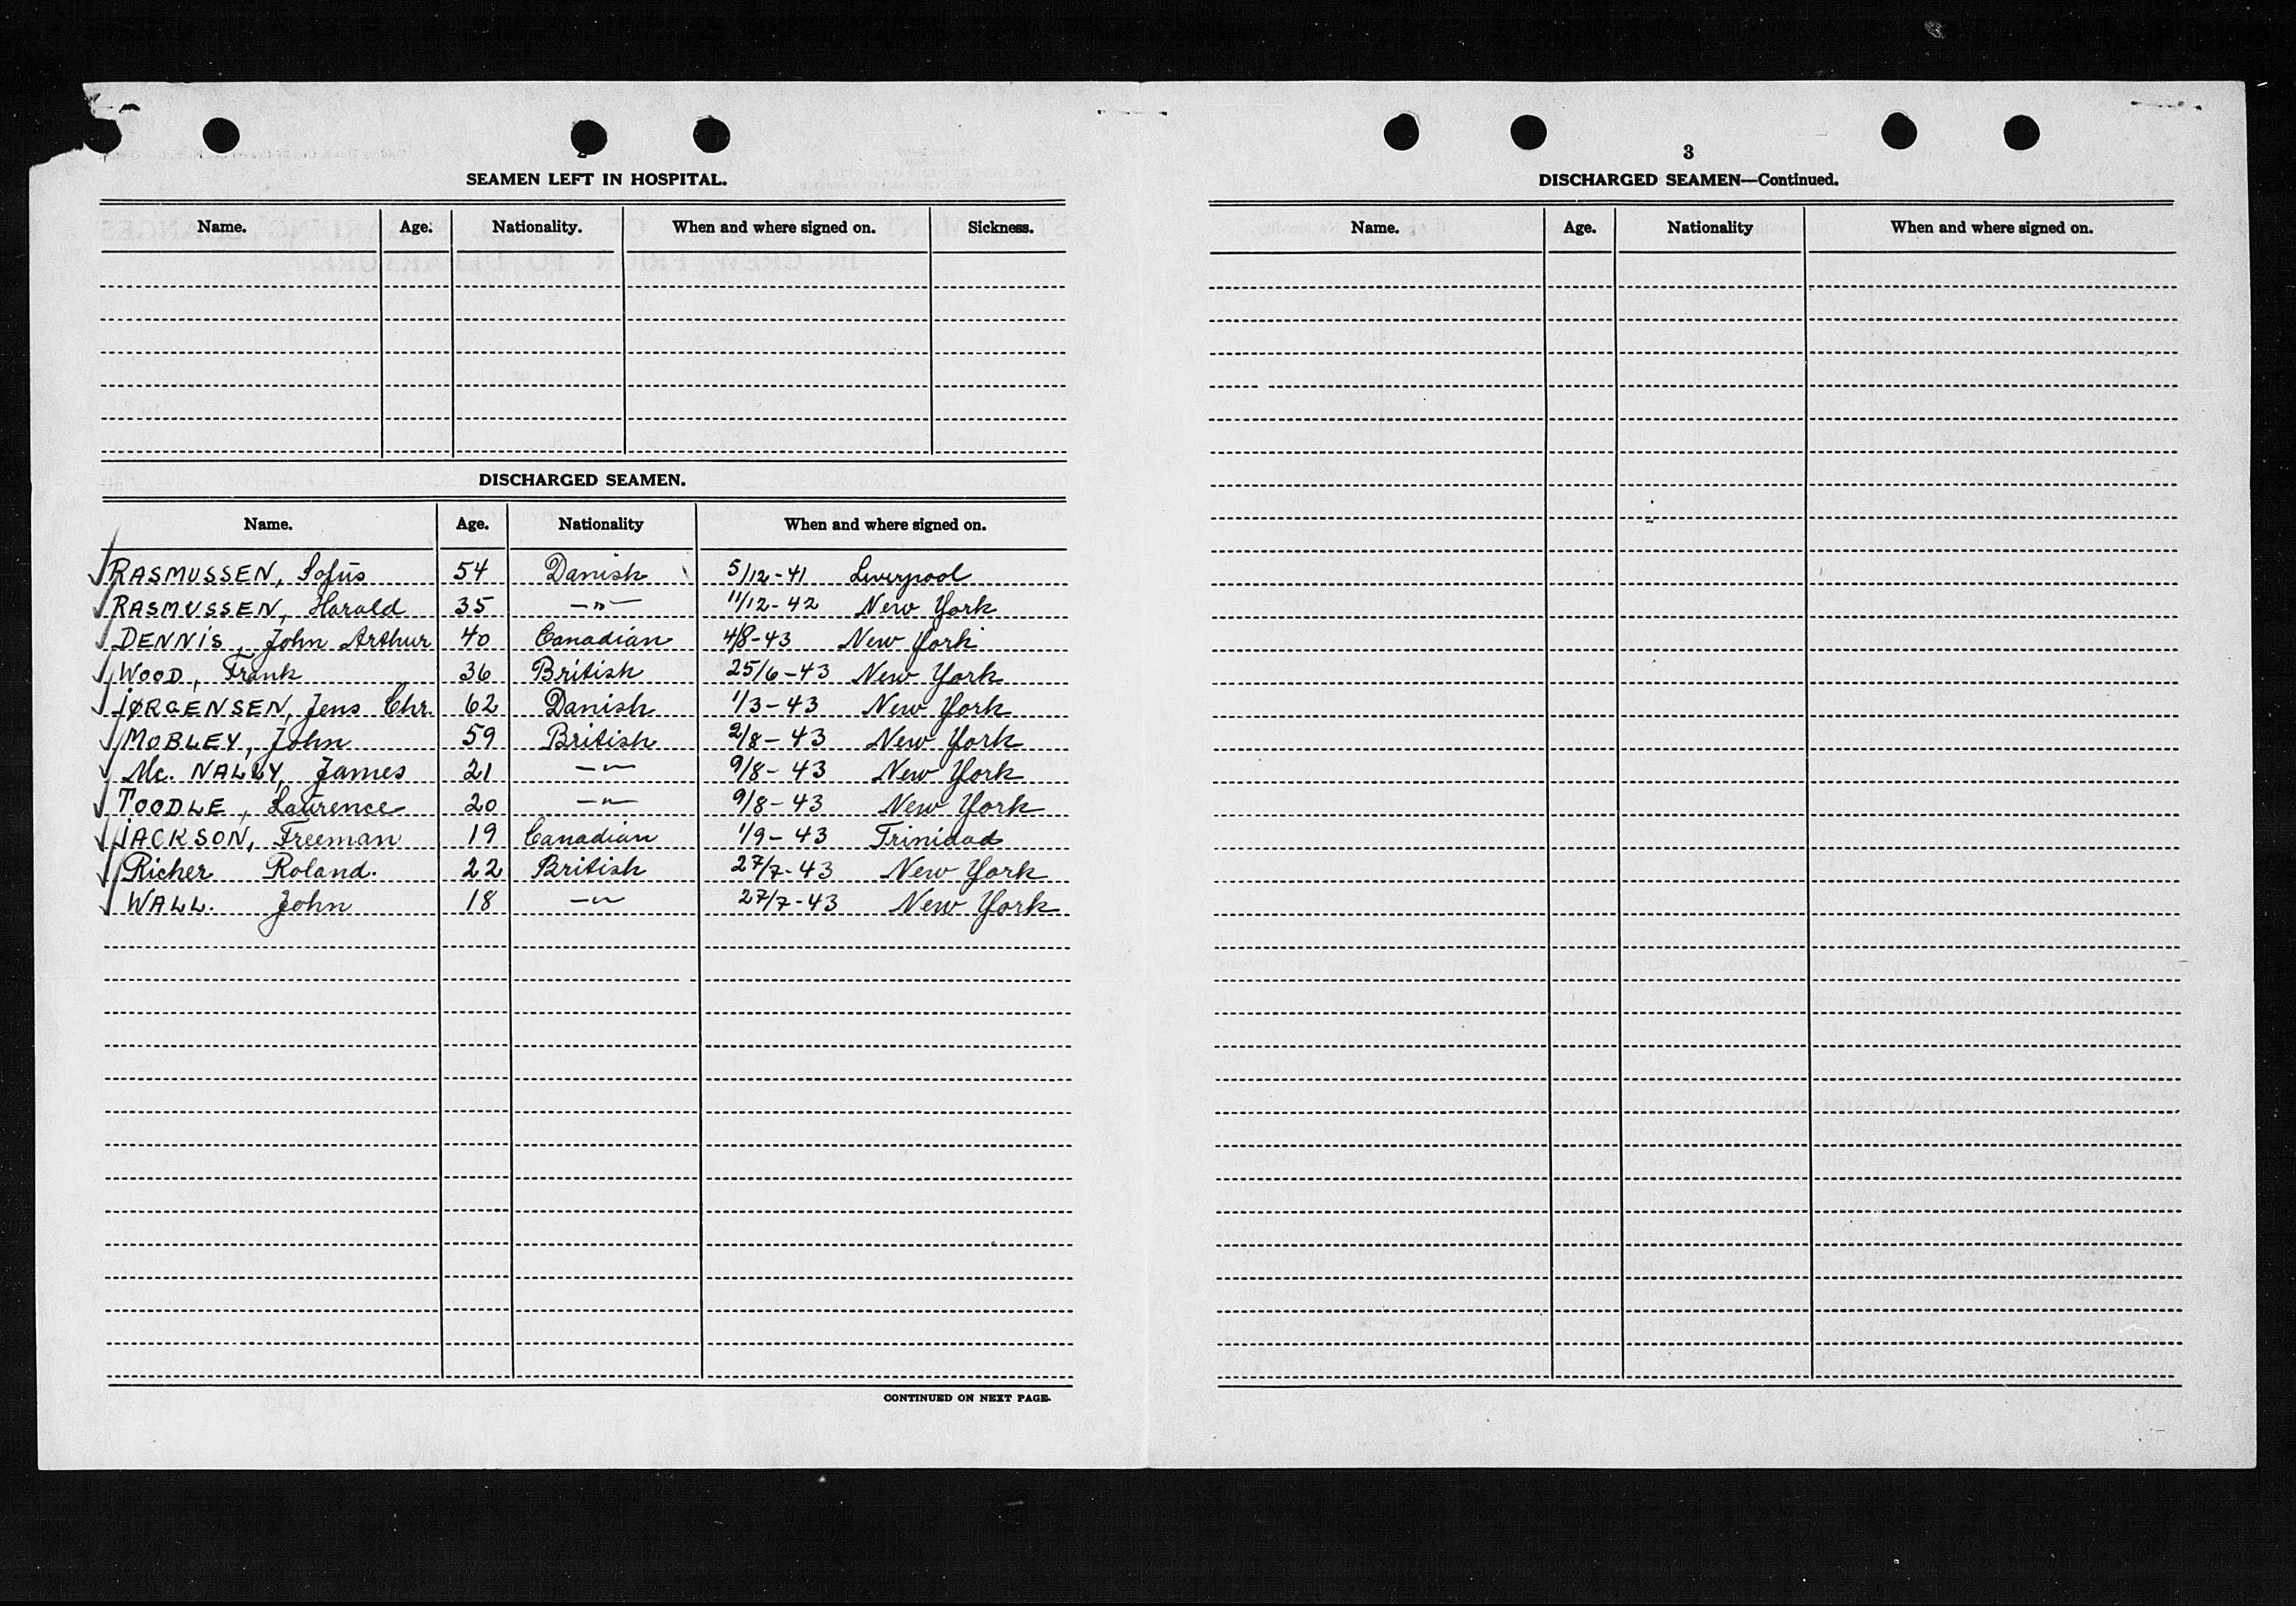 SEAMEN LEFT IN HOSPITAL.
Name. Age. Nationality. When and where signed on. Sickness.
DISCHARGED SEAMEN.
Name. Age. Nationality When and where signed on.
RASMUSSEN, Sofus 54 Danish 5/12-41 Liverpool
RASMUSSEN, Harald 35 —"— 11/12-42 New York
DENNIS, John Arthur 40 Canadian 4/8-43 New York
WOOD, Frank 36 British 25/6-43 New York
JØRGENSEN, Jens Chr. 62 Danish 1/3-43 New York
MOBLEY, John 59 British 2/8-43 New York
Mc. NALLY, James 21 —"— 9/8-43 New York
TOODLE, Laurence 20 —"— 9/8-43 New York
JACKSON, Freeman 19 Canadian 1/9-43 Trinidad
Richer Roland. 22 British 27/7-43 New York
WALL. John 18 —"— 27/7-43 New York
CONTINUED ON NEXT PAGE.
3
DISCHARGED SEAMEN—Continued.
Name. Age. Nationality When and where signed on.